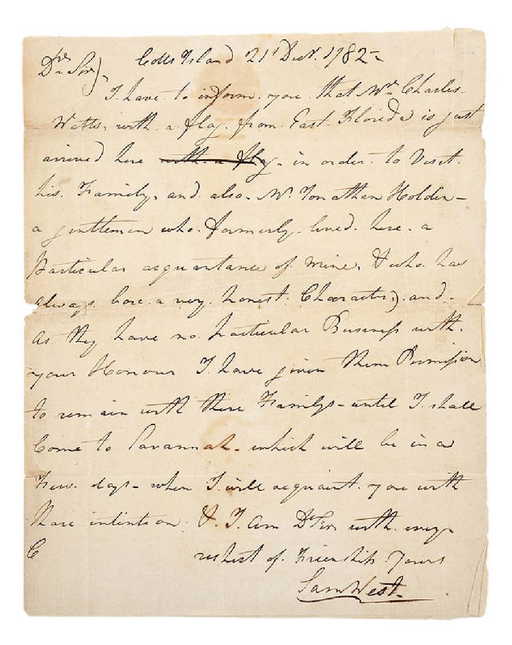 Island 21st Decr. 1782-
Dr. Sir,
I have to inform you that Mr. Charles
with a flag from East Florida is just
arived here with a flag in order to Visit
his Family, and also Mr. Jonathan Holden-
a gentleman who formerly lived here a
Particular acquaintance of mine, & who has
always bore a very honest Character). and
as they have no particular Business with
your Honour I have given them Permission
to remain with there Familys - until I shall
Come to Savannah - which will be in a
Few days - when I will acquaint you with
thare intintion. & I am Dr Sir with every
respect of Friendship Yours
Sam West-